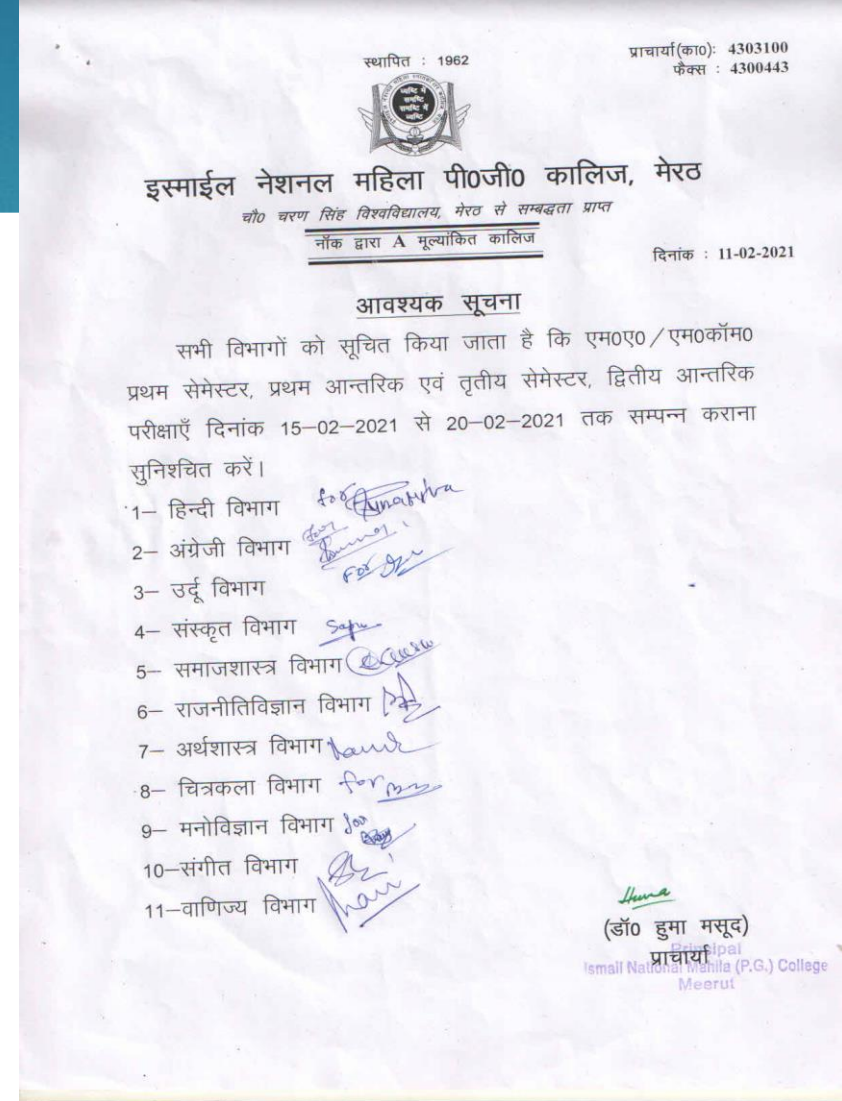 प्राचार्या(का0): 4303100
फैक्स : 4300443
स्थापित : 1962
व्यष्टि में
समष्टि
समष्टि में
व्यष्टि
इस्माईल नेशनल महिला पी0जी0 कालिज, मेरठ
चौ0 चरण सिंह विश्वविद्यालय, मेरठ से सम्बद्धता प्राप्त
नॉक द्वारा A मूल्यांकित कालिज
दिनांक : 11-02-2021
आवश्यक सूचना
सभी विभागों को सूचित किया जाता है कि एम0ए0/एम0कॉम0
प्रथम सेमेस्टर, प्रथम आन्तरिक एवं तृतीय सेमेस्टर, द्वितीय आन्तरिक
परीक्षाएँ दिनांक 15–02–2021 से 20–02–2021 तक सम्पन्न कराना
सुनिश्चित करें।
1– हिन्दी विभाग for
2– अंग्रेजी विभाग for
For
3– उर्दू विभाग
4– संस्कृत विभाग
5– समाजशास्त्र विभाग
6– राजनीतिविज्ञान विभाग
7– अर्थशास्त्र विभाग
8– चित्रकला विभाग for
9– मनोविज्ञान विभाग for
10–संगीत विभाग
11–वाणिज्य विभाग
Huma
(डॉ0 हुमा मसूद)
प्राचार्या
Principal
Ismail National Mahila (P.G.) College
Meerut